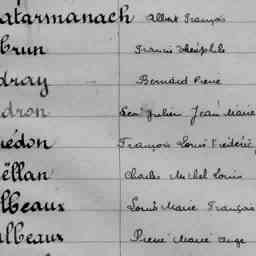 atarmanach Albert François
brun Francis Théophile
dray Bernard Pierre
dron Jean Marie
uédon François Louis Frédéric
ëllan Charles Michel Louis
lbeaux Louis Marie François
albeaux Pierre Marie Ange